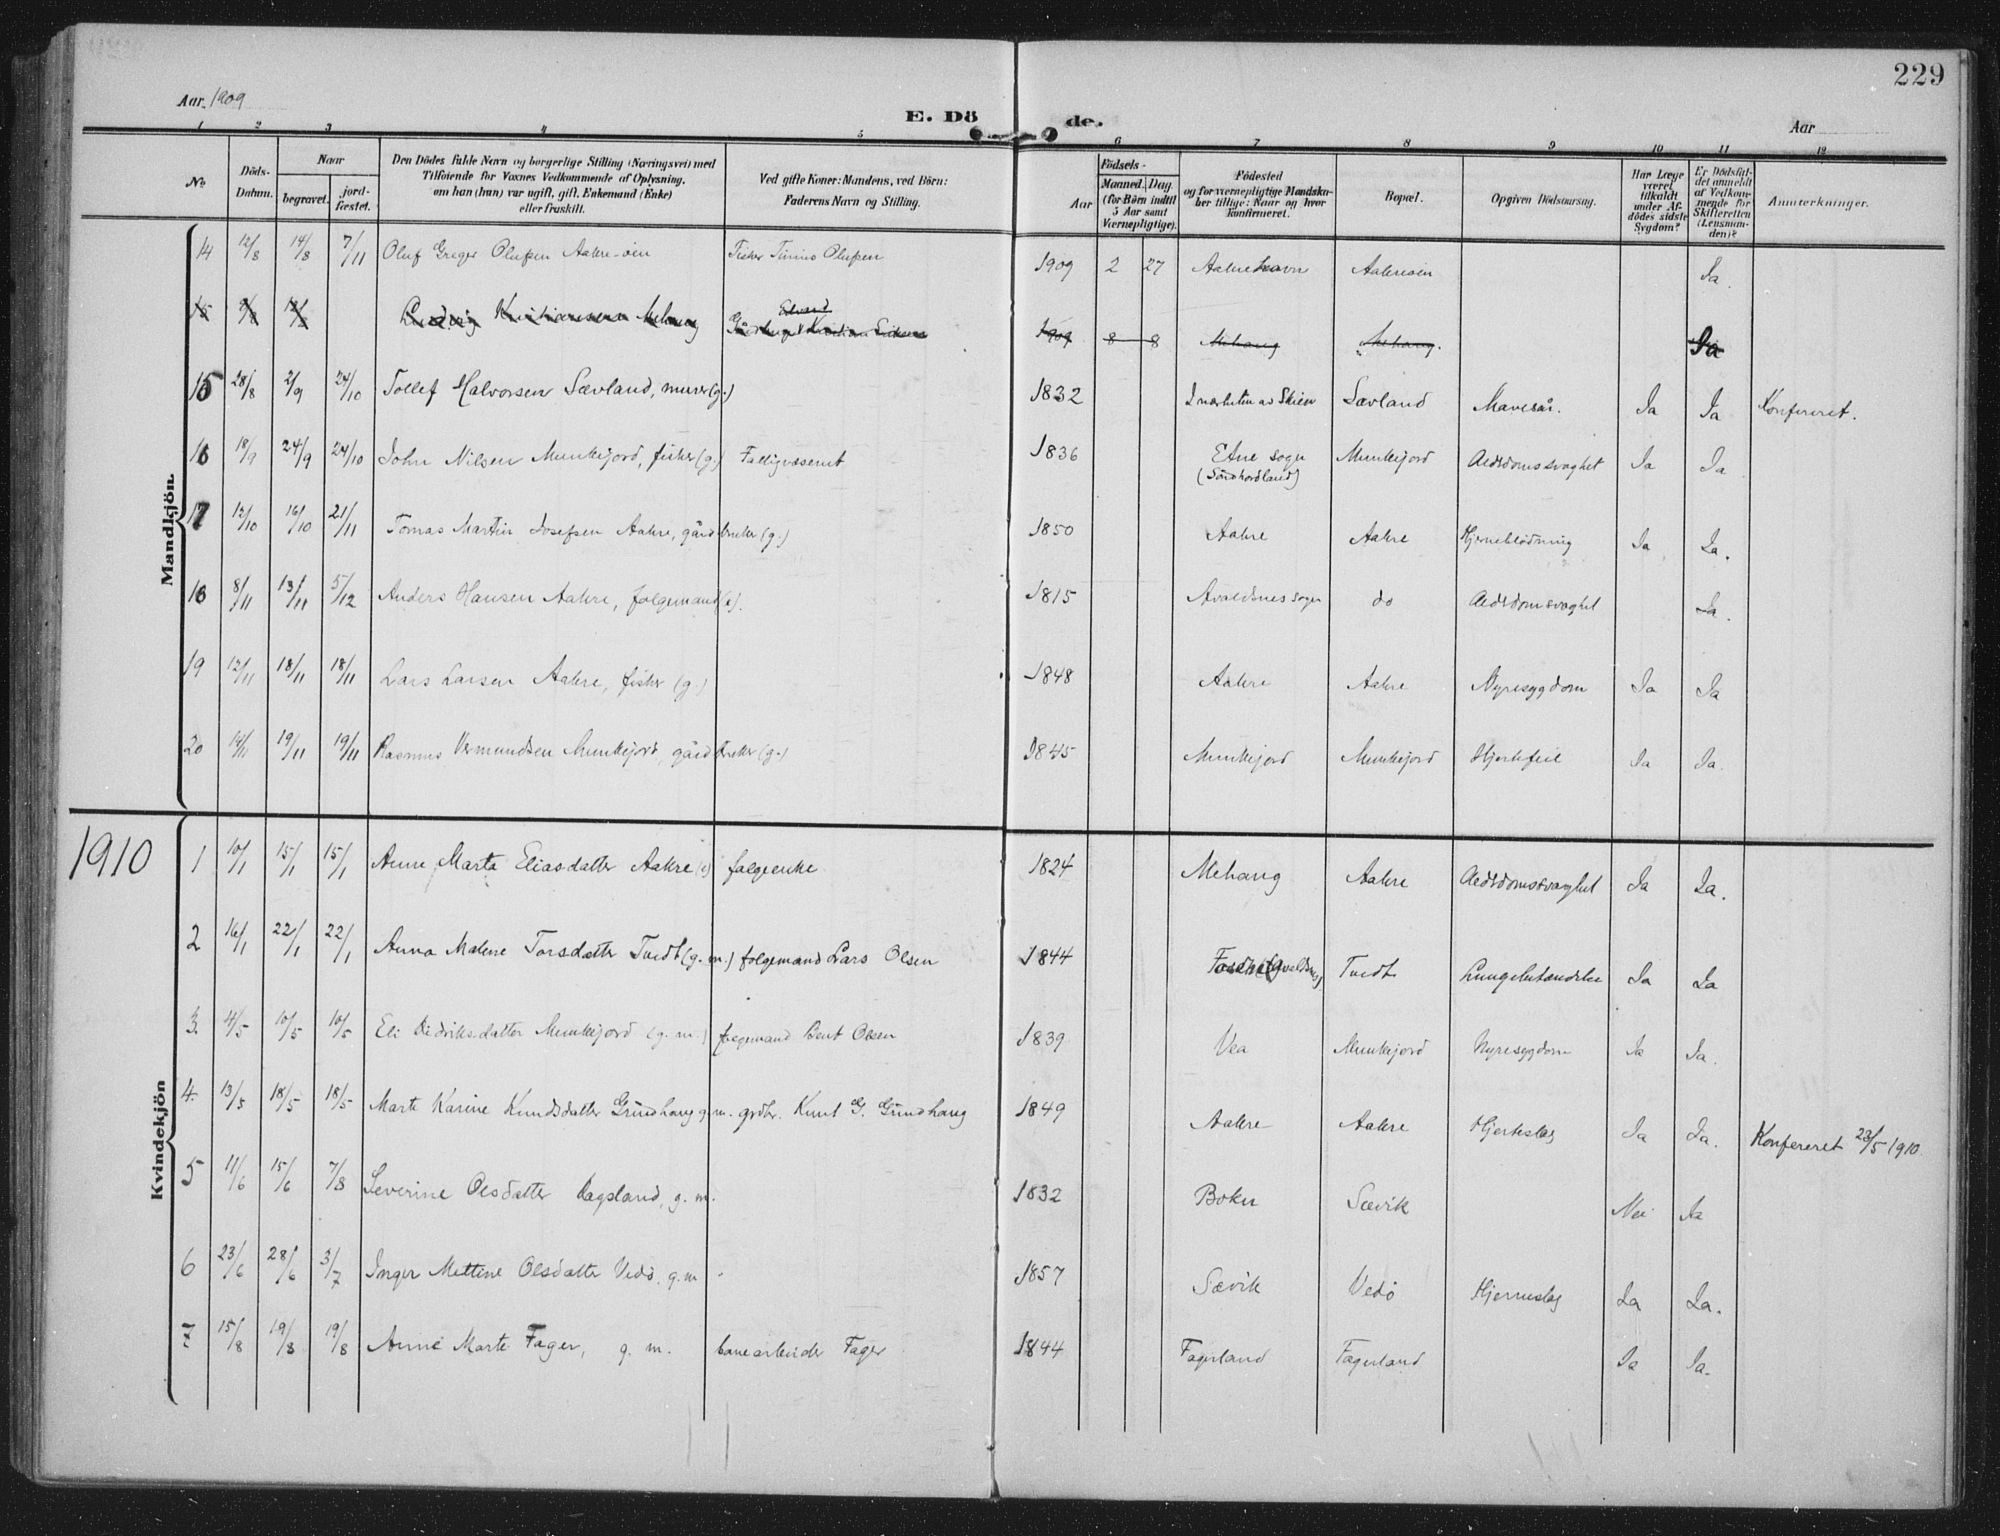 229
Aar 1909
E. Dö de.
Aar
1 2 3 4 5 6 7 8 9 10 11 12
No.
Döds-Datum.
Naar
begravet.
jord-fæstet.
Den Dödes fulde Navn og borgerlige Stilling (Næringsvei) med
Tilföiende for Voxnes Vedkommende af Oplysning,
om han (hun) var ugift, gift, Enkemand (Enke)
eller fraskilt.
Ved gifte Koner: Mandens, ved Börn:
Faderens Navn og Stilling.
Aar
Födsels-
Maaned. Dag.
(for Börn indtil
5 Aar samt
Værnepligtige).
Födested
og for værnepligtige Mandska-
ber tillige: Naar og hvor
konfirmeret.
Bopæl.
Opgiven Dödsaarsag.
Har Læge
været
tilkaldt
under Af-
dödes sidste
Sygdom?
Er Dödsfal-
det anmeldt
af Vedkom-
mende for
Skifteretten
(Lensman-
den)?
Anmærkninger.
Mandkjön.
14 12/8 14/8 7/11 Oluf Greger Olufsen Aakre-öen Fisker Tinius Olufsen 1909 2 27 Aakrehavn Aakreöen Ja.
15 Ludvig Kristiansen Mehaug Edvard Kristian Eriksen 1909 8 8 Mehaug Mehaug. Ja
15 28/8 2/9 24/10 Tollef Halvorsen Sævland, murer (g.) 1832 I nærheten av Skien Sævland Mavesår. Ja Ja Konfereret.
16 18/9 24/9 24/10 John Nilsen Munkejord, fisker (g.) Fattigvæsenet 1836 Etne sogn (Söndhordland) Munkejord Aldrdomssvaghet Ja Ja
17 12/10 16/10 21/11 Tomas Martin Josefsen Aakre, gårdbruker (g.) 1850 Aakre Aakre Hjerneblödning Ja Ja.
18 8/11 13/11 5/12 Anders Hansen Aakre, folgemand (e). 1815 Avaldsnes sogn do Aldrdomsvaghet Ja.
19 12/11 18/11 18/11 Lars Larsen Aakre, fisker (g.) 1848 Aakre Aakre Nyresygdom Ja Ja
20 14/11 19/11 19/11 Rasmus Vermundsen Munkejord, gårdbruker (g.) 1845 Munkejord Munkejord Hjertefeil Ja Ja.
1910
Kvindekjön
1 10/1 15/1 15/1 Anne Marta Eliasdatter Aakre (e) folgeenke 1824 Mehaug Aakre Aldrdomssvaghet Ja Ja.
2 16/1 22/1 22/1 Anna Malene Torsdatter Tvedt (g. m.) folgemand Lars Olsen 1844 Tvedt Lungebetændelse Ja Ja
3. 4/5 10/5 10/5 Eli Didriksdatter Munkejord (g. m.) folgemand Bent Olsen 1839 Vea Munkejord Nyresygdom Ja Ja.
4. 13/5 18/5 18/5 Marte Karine Knudsdatter Grindhaug g. m. grdbr. Knut G. Grindhaug 1849 Aakre Aakre Hjerteslag Ja Ja. Konfereret 23/5 1910
5 11/6 15/6 7/8 Severine Olsdatter Dagsland, g. m. 1832 Bokn Sævik Nei Ja
6 23/6 28/6 3/7 Inger Mettine Olsdatter Vedö, g. m. 1857 Sævik Vedö Hjerneslag Ja Ja.
7 15/8 19/8 19/8 Anne Marte Fager, g. m. banearbeider Fager 1844 Fagerland Fagerland Ja Ja.